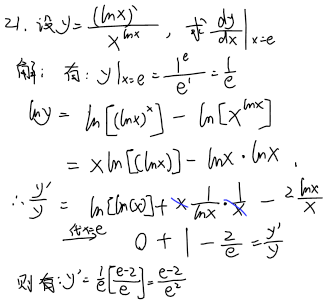 21. 设 y = (lnx)^x / x^{lnx} , 求 dy/dx |_{x=e}
解: 有: y|_{x=e} = 1^e / e^1 = 1/e
lny = ln[(lnx)^x] - ln[x^{lnx}]
= x ln[(lnx)] - lnx · lnx .
∴ y'/y = ln[ln(x)] + x 1/lnx · 1/x - 2 lnx/x
代x=e 0 + 1 - 2/e = y'/y
则有: y' = 1/e [e-2/e] = e-2/e²